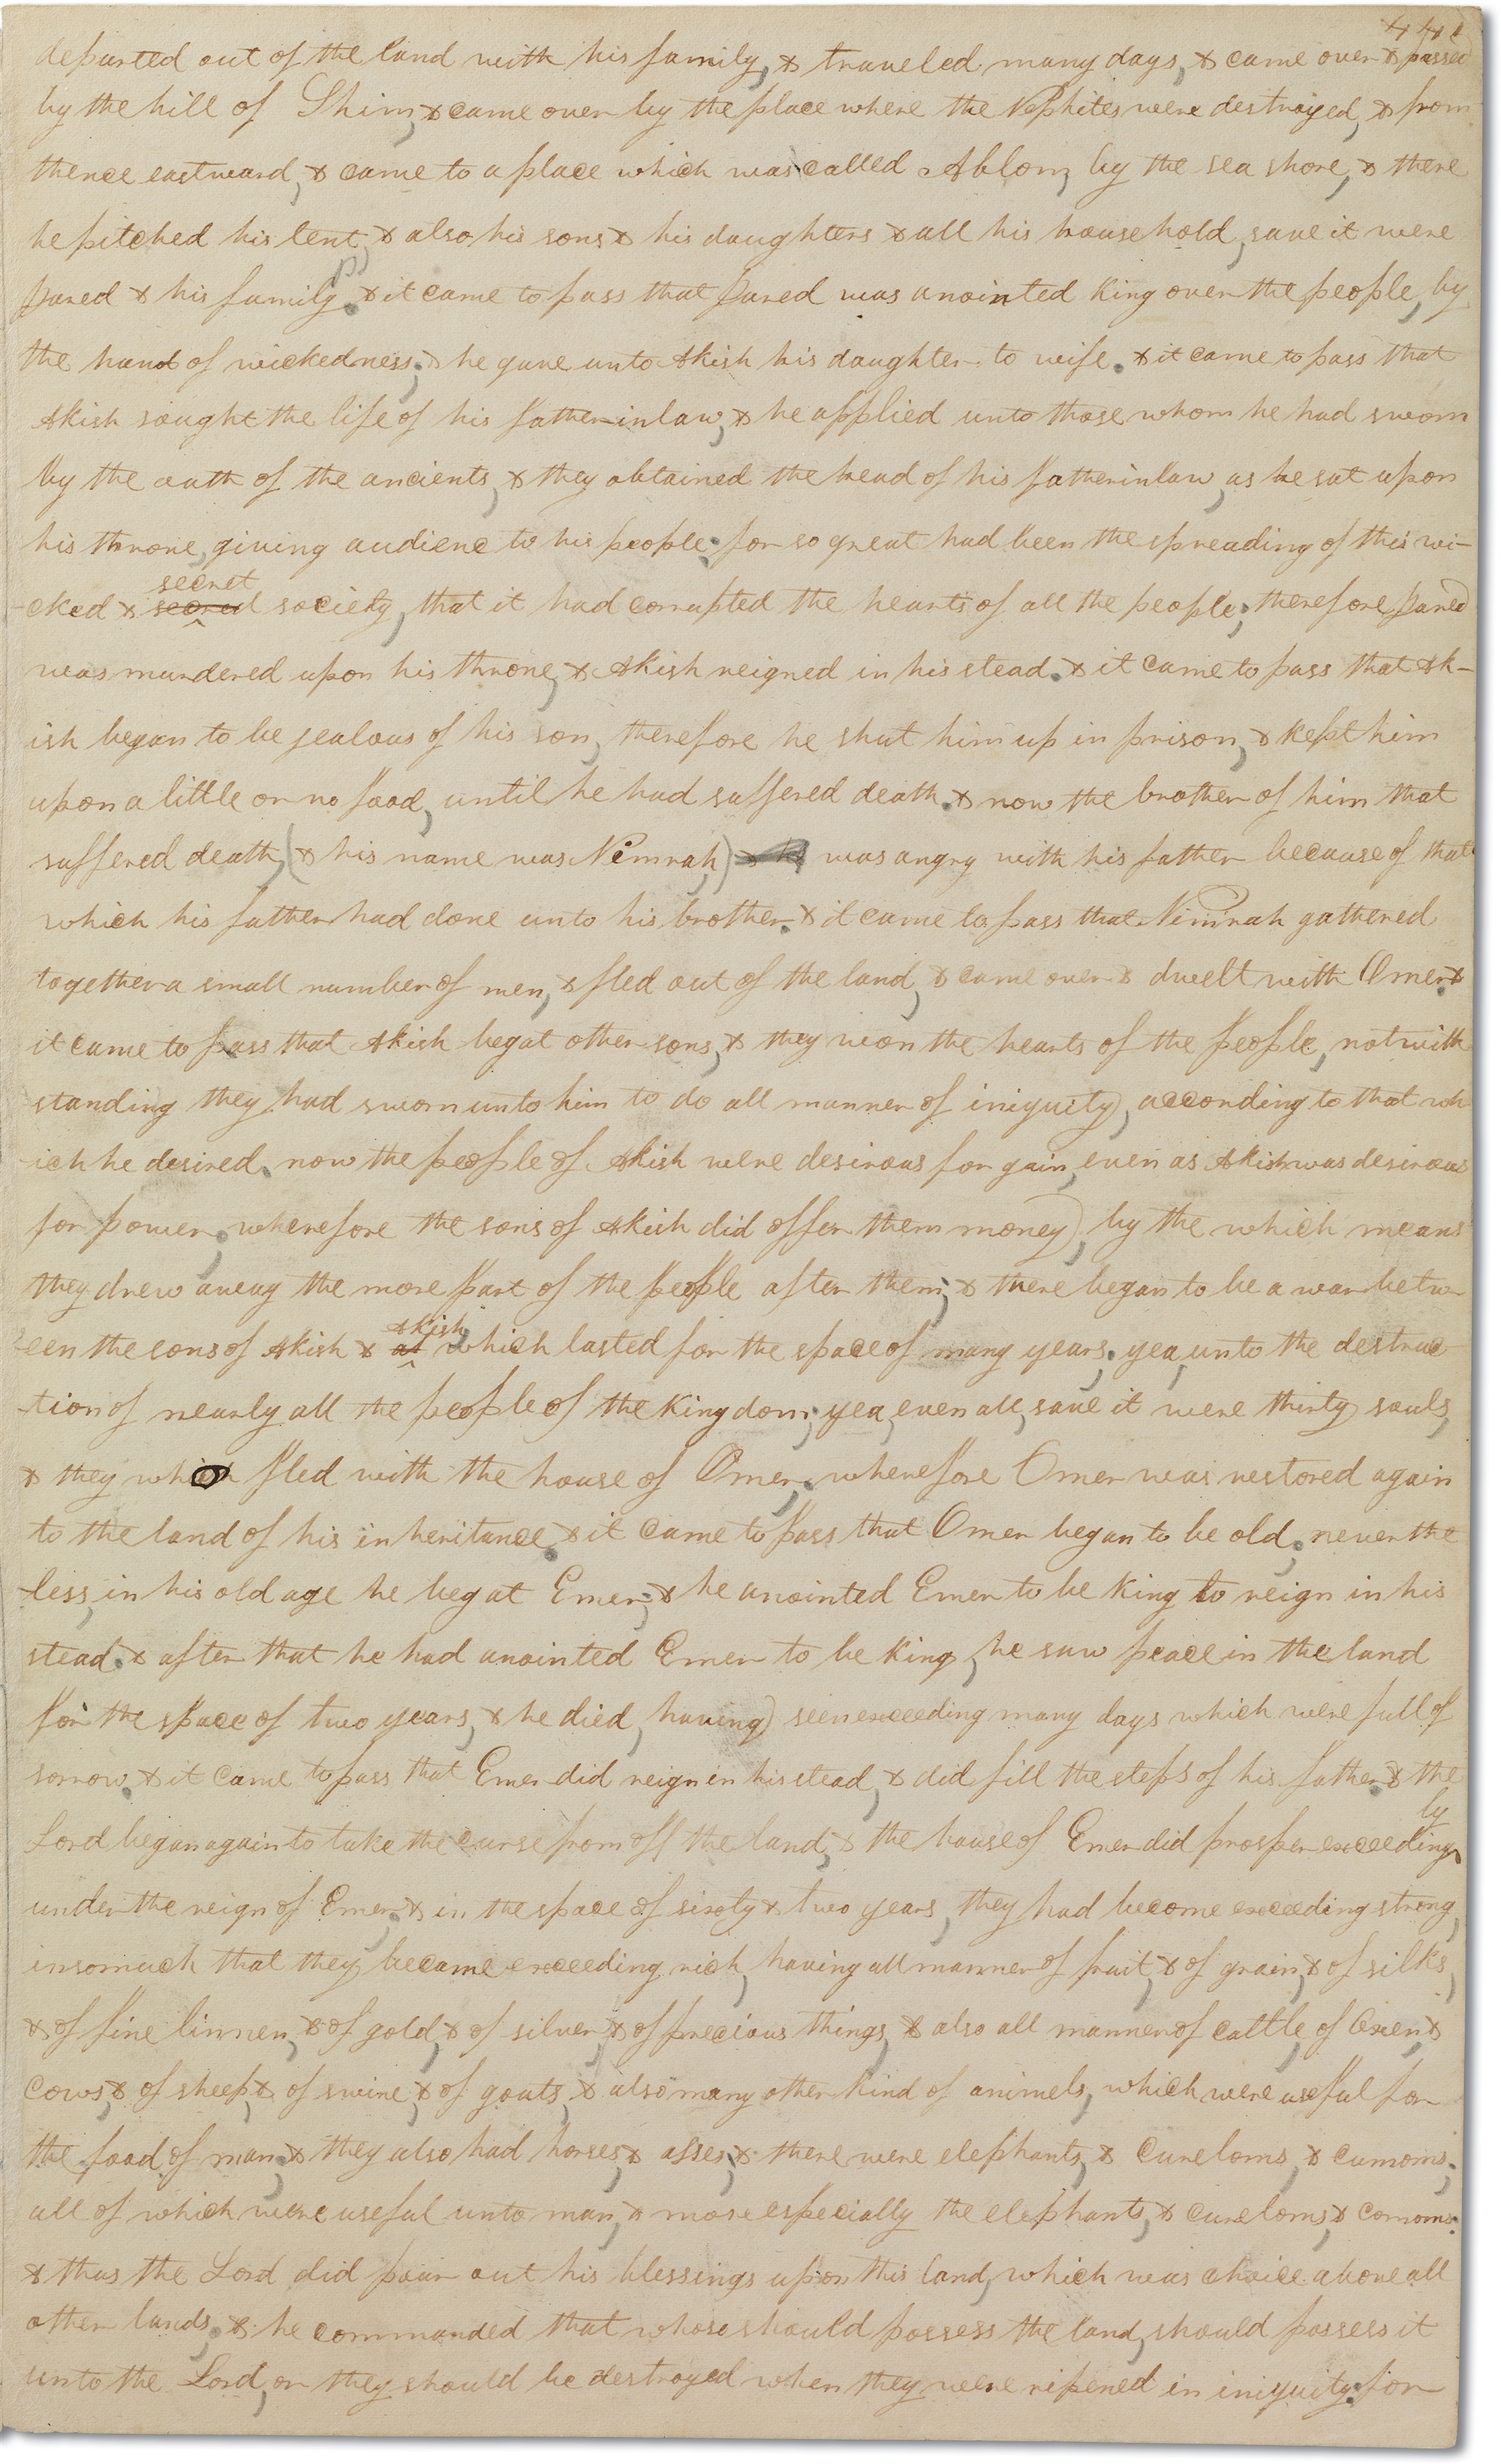 441
departed out of the land with his family, & traveled many days, & came over & passed
by the hill of Shim, & came over by the place where the Nephites were destroyed, & from
thence eastward, & came to a place which was called Ablom, by the sea shore, & there
he pitched his tent, & also his sons & his daughters & all his household, save it were
Jared & his family. & it came to pass that Jared was anointed king over the people, by
the hand of wickedness; & he gave unto Akish his daughter to wife. & it came to pass that
Akish sought the life of his fatherinlaw, & he applied unto those whom he had sworn
by the oath of the ancients, & they obtained the head of his fatherinlaw, as he sat upon
his throne, giving audience to his people. for so great had been the spreading of this wi-
secret
-cked & secred society, that it had corrupted the hearts of all the people; therefore Jared
was murdered upon his throne, & Akish reigned in his stead. & it came to pass that Ak-
ish began to be jealous of his son, therefore he shut him up in prison, & kept him
upon a little or no food, until he had suffered death. & now the brother of him that
suffered death, (& his name was Nimrah,) & he was angry with his father because of that
which his father had done unto his brother. & it came to pass that Nimrah gathered
together a small number of men, & fled out of the land, & came over & dwelt with Omer. &
it came to pass that Akish begat other sons, & they won the hearts of the people, notwith
standing they had sworn unto him to do all manner of iniquity, according to that wh
-ich he desired. now the people of Akish were desirous for gain, even as Akish was desirous
for power; wherefore the sons of Akish did offer them money, by the which means
they drew away the more part of the people after them; & there began to be a war betw
Akish,
-een the sons of Akish & at which lasted for the space of many years; yea, unto the destruc
-tion of nearly all the people of the kingdom; yea, even all, save it were thirty souls,
& they who fled with the house of Omer; wherefore Omer was restored again
to the land of his inheritance. & it came to pass that Omer began to be old; neverthe
-less, in his old age he begat Emer; & he anointed Emer to be king to reign in his
stead. & after that he had anointed Emer to be king, he saw peace in the land
for the space of two years, & he died, having seen exceeding many days which were full of
sorrow. & it came to pass that Emer did reign in his stead, & did fill the steps of his father. & the
ly
Lord began again to take the curse from off the land, & the house of Emer did prosper exceeding
under the reign of Emer; & in the space of sixty & two years, they had become exceeding strong,
insomuch that they became exceeding rich, having all manner of fruit, & of grain, & of silks,
& of fine linnen, & of gold, & of silver, & of precious things, & also all manner of cattle, of Oxen, &
cows, & of sheep, & of swine, & of goats, & also many other kind of animels, which were useful for
the food of man; & they also had horses, & asses, & there were elephants, & cureloms, & cumoms;
all of which were useful unto man, & more especially the elephants, & cureloms, & comoms.
& thus the Lord did pour out his blessings upon this land, which was choice above all
other lands; & he commanded that whoso should possess the land, should possess it
unto the Lord, or they should be destroyed when they were ripened in iniquity; for